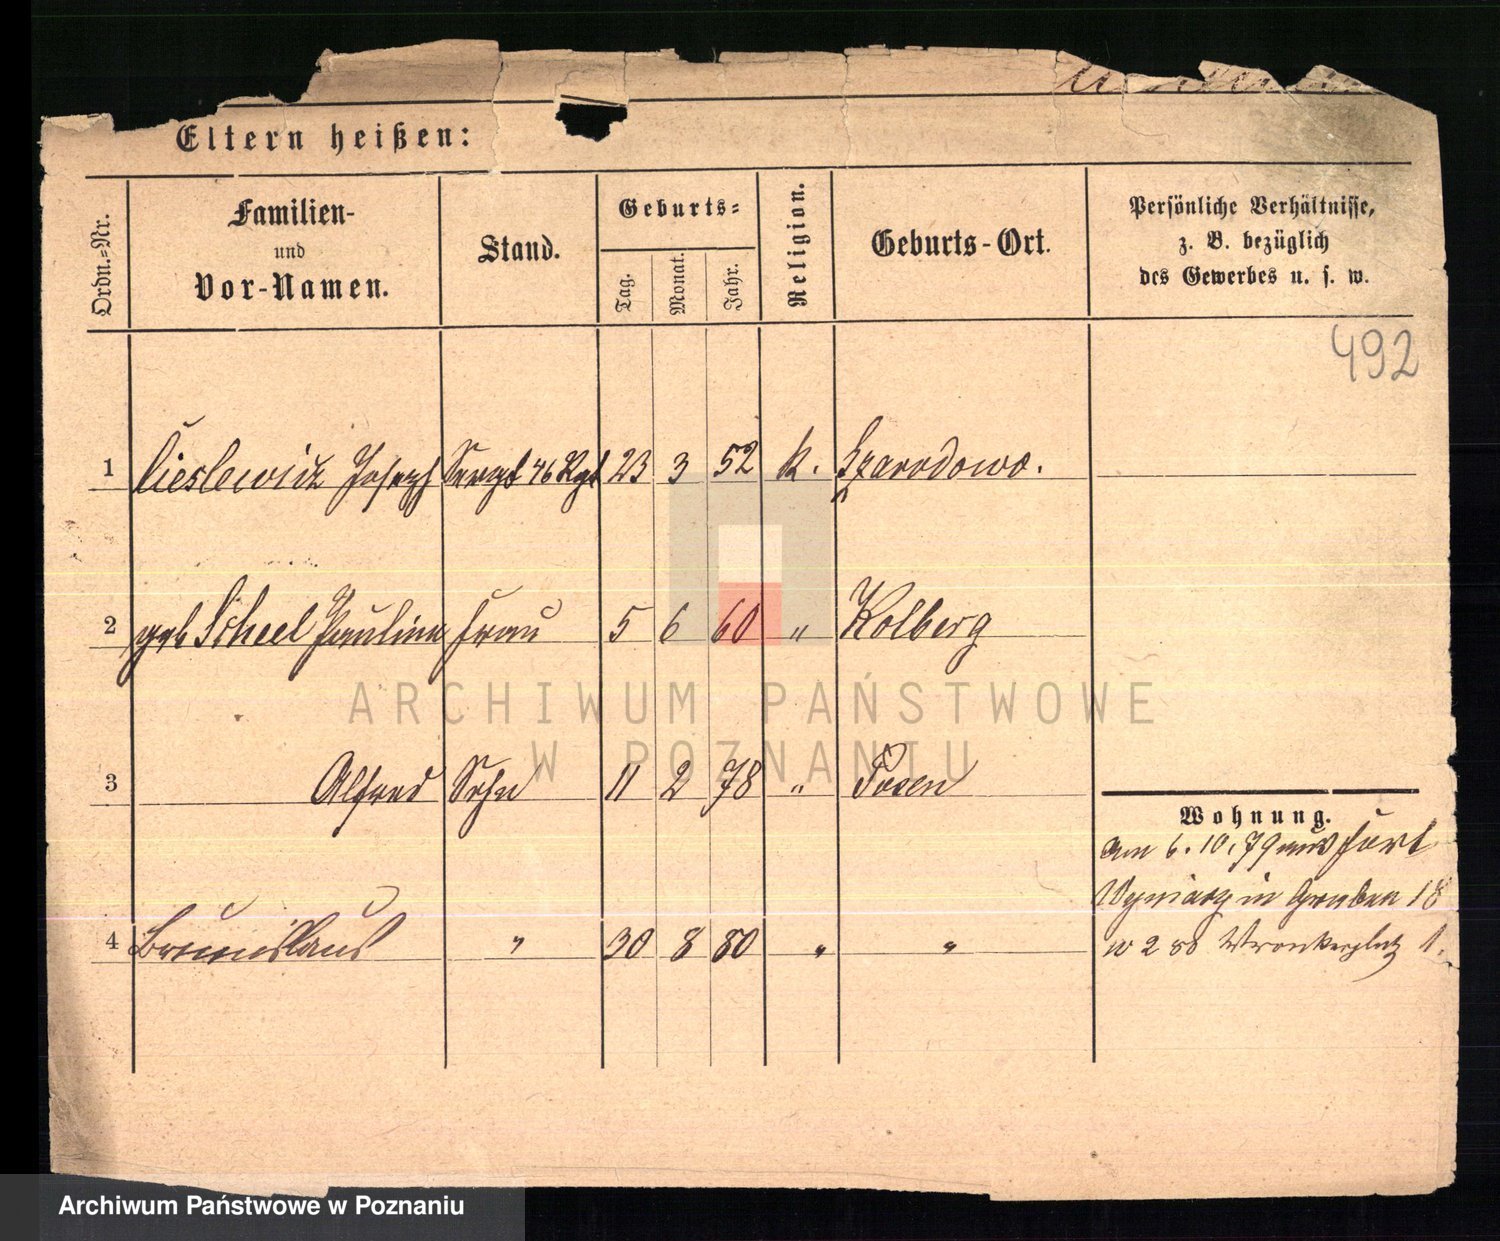 Eltern heißen:
Ordn.-Nr.
Familien-
und
Vor-Namen.
Stand.
Geburts-
Tag.
Monat.
Jahr.
Religion.
Geburts-Ort.
Persönliche Verhältnisse,
z. B. bezüglich
des Gewerbes u. s. w.
492
1 Cieslewicz Joseph Sergt 46 Rgt 23 3 52 k. Szarodowo.
2 geb Scheel Pauline Frau 5 6 60 " Kolberg
ARCHIWUM PAŃSTWOWE
W POZNANIU
3 Alfred Sohn 11 2 78 " Posen
Wohnung.
am 6. 10. 79 aus Fort
in Graben 18
4 Bronislaus " 30 8 80 " "
Wronkerplatz 1.
Archiwum Państwowe w Poznaniu